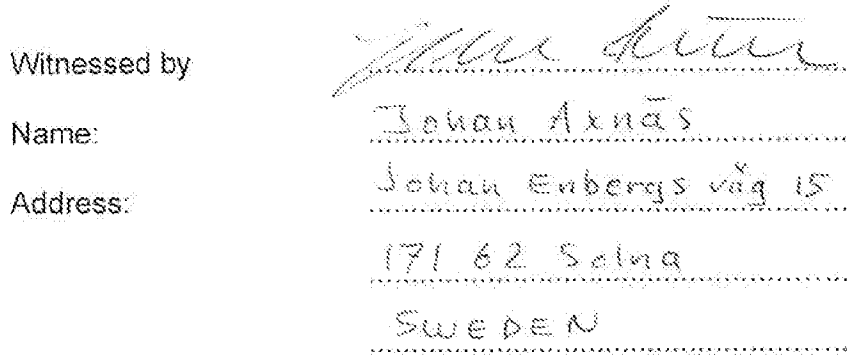 Witnessed by
Name: Johan Axnäs
Address: Johan Enbergs väg 15
171 62 Solna
SWEDEN